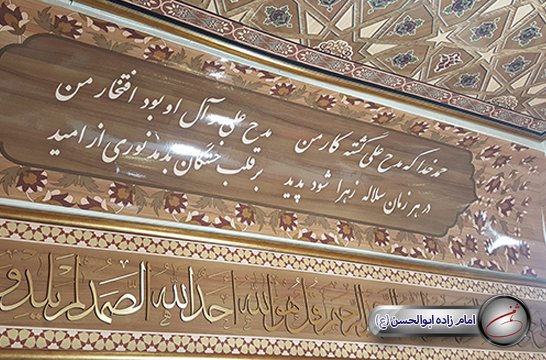 حمد خدا که مدح علی گشته کار من
مدح علی و آل او بود افتخار من
در هر زمان سلاله زهرا شود پدید
بر قلب خستگان بدمد نوری از امید
الرحیم قل هو الله احد الله الصمد لم یلد و
امام زاده ابوالحسن (ع)